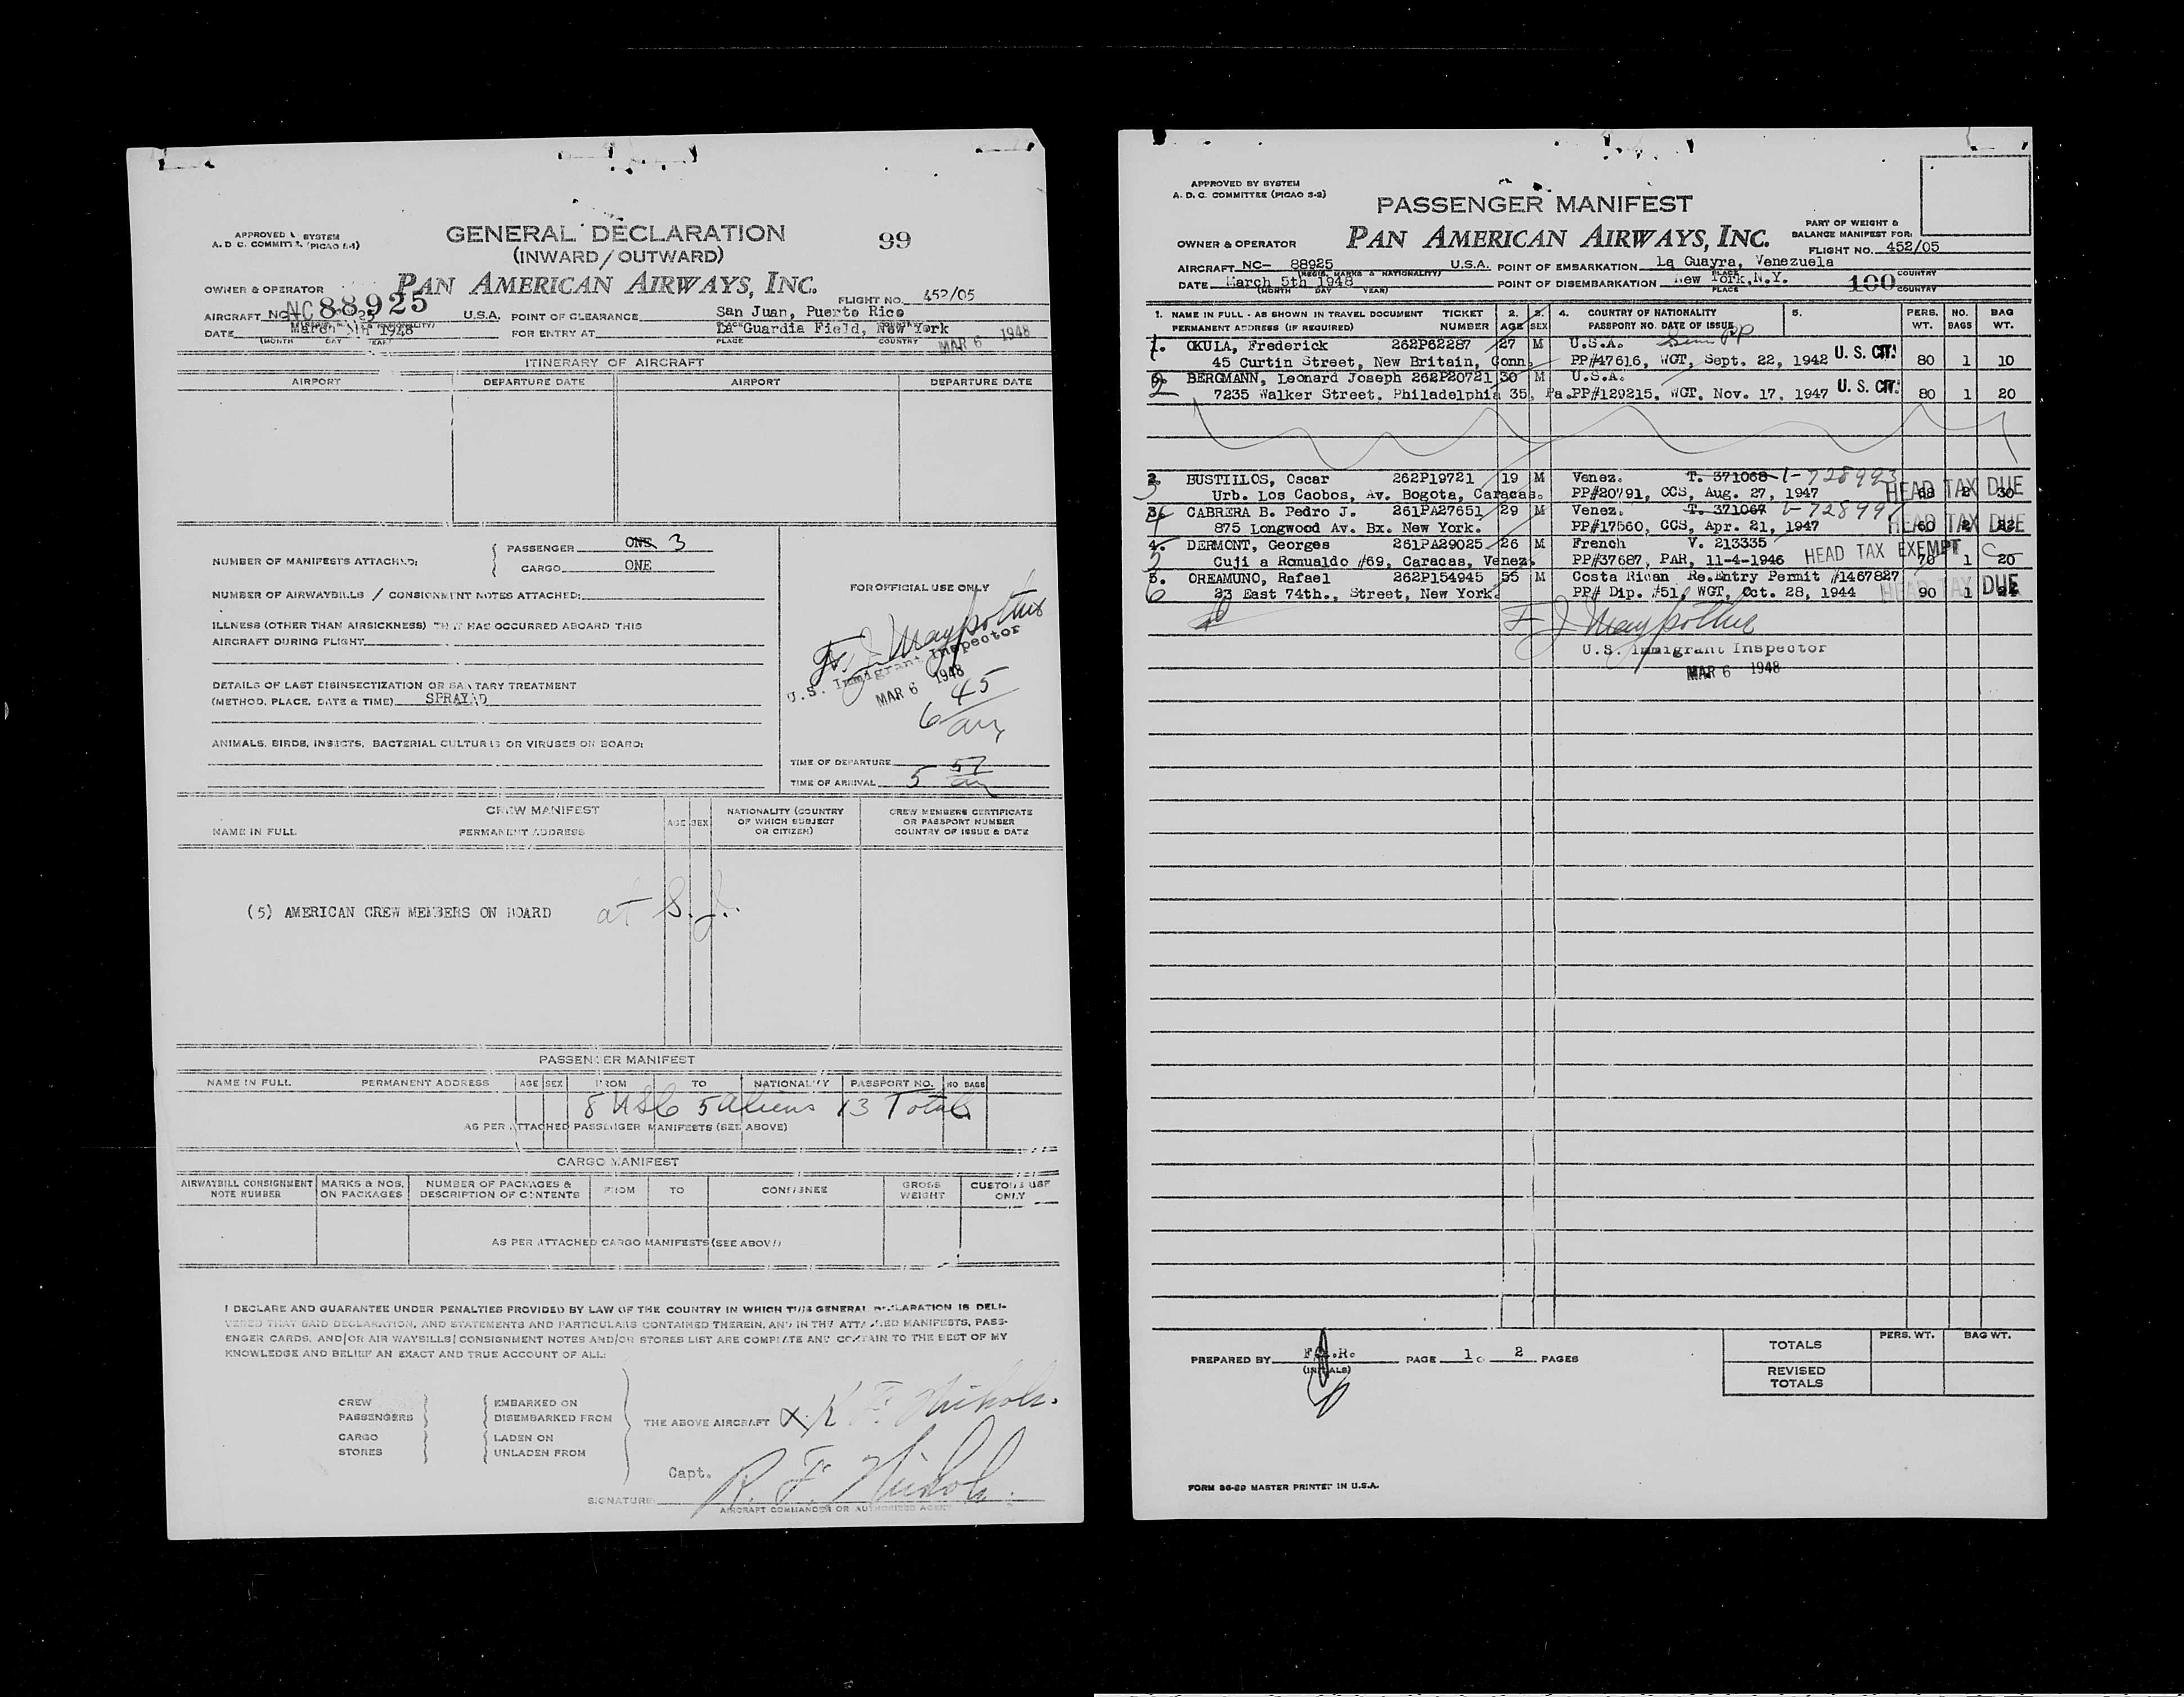 APPROVED SYSTEM
A. D. C. COMMITTEE (PICAO S-1)
GENERAL DECLARATION
99
(INWARD/OUTWARD)
PAN AMERICAN AIRWAYS, INC.
OWNER & OPERATOR
FLIGHT NO. 452/05
AIRCRAFT NC NC88925 U.S.A. POINT OF CLEARANCE San Juan, Puerto Rico
DATE March 5th 1948 FOR ENTRY AT La Guardia Field, New York
(MONTH DAY YEAR) PLACE COUNTRY MAR 6 1948
ITINERARY OF AIRCRAFT
AIRPORT DEPARTURE DATE AIRPORT DEPARTURE DATE
NUMBER OF MANIFESTS ATTACHED: PASSENGER ONE 3
CARGO ONE
NUMBER OF AIRWAYBILLS / CONSIGNMENT NOTES ATTACHED:
FOR OFFICIAL USE ONLY
ILLNESS (OTHER THAN AIRSICKNESS) THAT HAS OCCURRED ABOARD THIS
AIRCRAFT DURING FLIGHT
F. J. Maypother
U.S. Immigrant Inspector
MAR 6 1948
DETAILS OF LAST DISINSECTIZATION OR SANITARY TREATMENT
(METHOD, PLACE, DATE & TIME) SPRAYED
6 45 am
ANIMALS, BIRDS, INSECTS, BACTERIAL CULTURES OR VIRUSES ON BOARD:
TIME OF DEPARTURE
TIME OF ARRIVAL 5 57 am
CREW MANIFEST
NAME IN FULL PERMANENT ADDRESS AGE SEX NATIONALITY (COUNTRY OF WHICH SUBJECT OR CITIZEN) CREW MEMBERS CERTIFICATE OR PASSPORT NUMBER COUNTRY OF ISSUE & DATE
(5) AMERICAN CREW MEMBERS ON BOARD at S. J.
PASSENGER MANIFEST
NAME IN FULL PERMANENT ADDRESS AGE SEX FROM TO NATIONALITY PASSPORT NO. NO BAGS
8 USC 5 Aliens 13 Total
AS PER ATTACHED PASSENGER MANIFESTS (SEE ABOVE)
CARGO MANIFEST
AIRWAYBILL CONSIGNMENT NOTE NUMBER MARKS & NOS. ON PACKAGES NUMBER OF PACKAGES & DESCRIPTION OF CONTENTS FROM TO CONSIGNEE GROSS WEIGHT CUSTOMS USE ONLY
AS PER ATTACHED CARGO MANIFESTS (SEE ABOVE)
I DECLARE AND GUARANTEE UNDER PENALTIES PROVIDED BY LAW OF THE COUNTRY IN WHICH THIS GENERAL DECLARATION IS DELI-
VERED THAT SAID DECLARATION, AND STATEMENTS AND PARTICULARS CONTAINED THEREIN, AND IN THE ATTACHED MANIFESTS, PASS-
ENGER CARDS, AND/OR AIR WAYBILLS/CONSIGNMENT NOTES AND/OR STORES LIST ARE COMPLETE AND CONTAIN TO THE BEST OF MY
KNOWLEDGE AND BELIEF AN EXACT AND TRUE ACCOUNT OF ALL:
CREW EMBARKED ON
PASSENGERS DISEMBARKED FROM
THE ABOVE AIRCRAFT X. R F. Nichols.
CARGO LADEN ON
STORES UNLADEN FROM
Capt. R. F. Nichols.
SIGNATURE
AIRCRAFT COMMANDER OR AUTHORIZED AGENT
APPROVED BY SYSTEM
A. D. C. COMMITTEE (PICAO S-2)
PASSENGER MANIFEST
PART OF WEIGHT &
BALANCE MANIFEST FOR:
OWNER & OPERATOR PAN AMERICAN AIRWAYS, INC.
FLIGHT NO. 452/05
AIRCRAFT NC- 88925 U.S.A. POINT OF EMBARKATION La Guayra, Venezuela
(REGIS. MARKS & NATIONALITY) PLACE COUNTRY
DATE March 5th 1948 POINT OF DISEMBARKATION New York, N.Y. 100
(MONTH DAY YEAR) PLACE COUNTRY
1. NAME IN FULL - AS SHOWN IN TRAVEL DOCUMENT TICKET 2. 3. 4. COUNTRY OF NATIONALITY 5. PERS. NO. BAG
PERMANENT ADDRESS (IF REQUIRED) NUMBER AGE SEX PASSPORT NO. DATE OF ISSUE WT. BAGS WT.
1. OKULA, Frederick 262P62287 27 M U.S.A.
45 Curtin Street, New Britain, Conn. PP#47616, WGT, Sept. 22, 1942 U. S. CIT. 80 1 10
2 BERGMANN, Leonard Joseph 262P20721 30 M U.S.A.
7235 Walker Street. Philadelphia 35, Pa. PP#129215, WGT, Nov. 17, 1947 U. S. CIT. 80 1 20
2. 3 BUSTILLOS, Oscar 262P19721 19 M Venez. T. 371068 V-728993
Urb. Los Caobos, Av. Bogota, Caracas. PP#20791, CCS, Aug. 27, 1947 HEAD TAX DUE 68 2 30
3. 4 CABRERA B. Pedro J. 261PA27651 29 M Venez. T. 371067
875 Longwood Av. Bx. New York. PP#17560, CCS, Apr. 21, 1947 HEAD TAX DUE 60 2 82
4. 5 DERMONT, Georges 261PA29025 26 M French V. 213335
Cuji a Romualdo #69, Caracas, Venez. PP#37687, PAR, 11-4-1946 HEAD TAX EXEMPT 70 1 20
5. 6 OREAMUNO, Rafael 262P154945 55 M Costa Rican Re.Entry Permit #1467827
23 East 74th., Street, New York. PP# Dip. #51, WGT, Oct. 28, 1944 HEAD TAX DUE 90 1
F J Maypother
U.S. Immigrant Inspector
MAR 6 1948
TOTALS PERS. WT. BAG WT.
PREPARED BY PAGE 1 o 2 PAGES
(INITIALS)
REVISED TOTALS
FORM 86-89 MASTER PRINTED IN U.S.A.